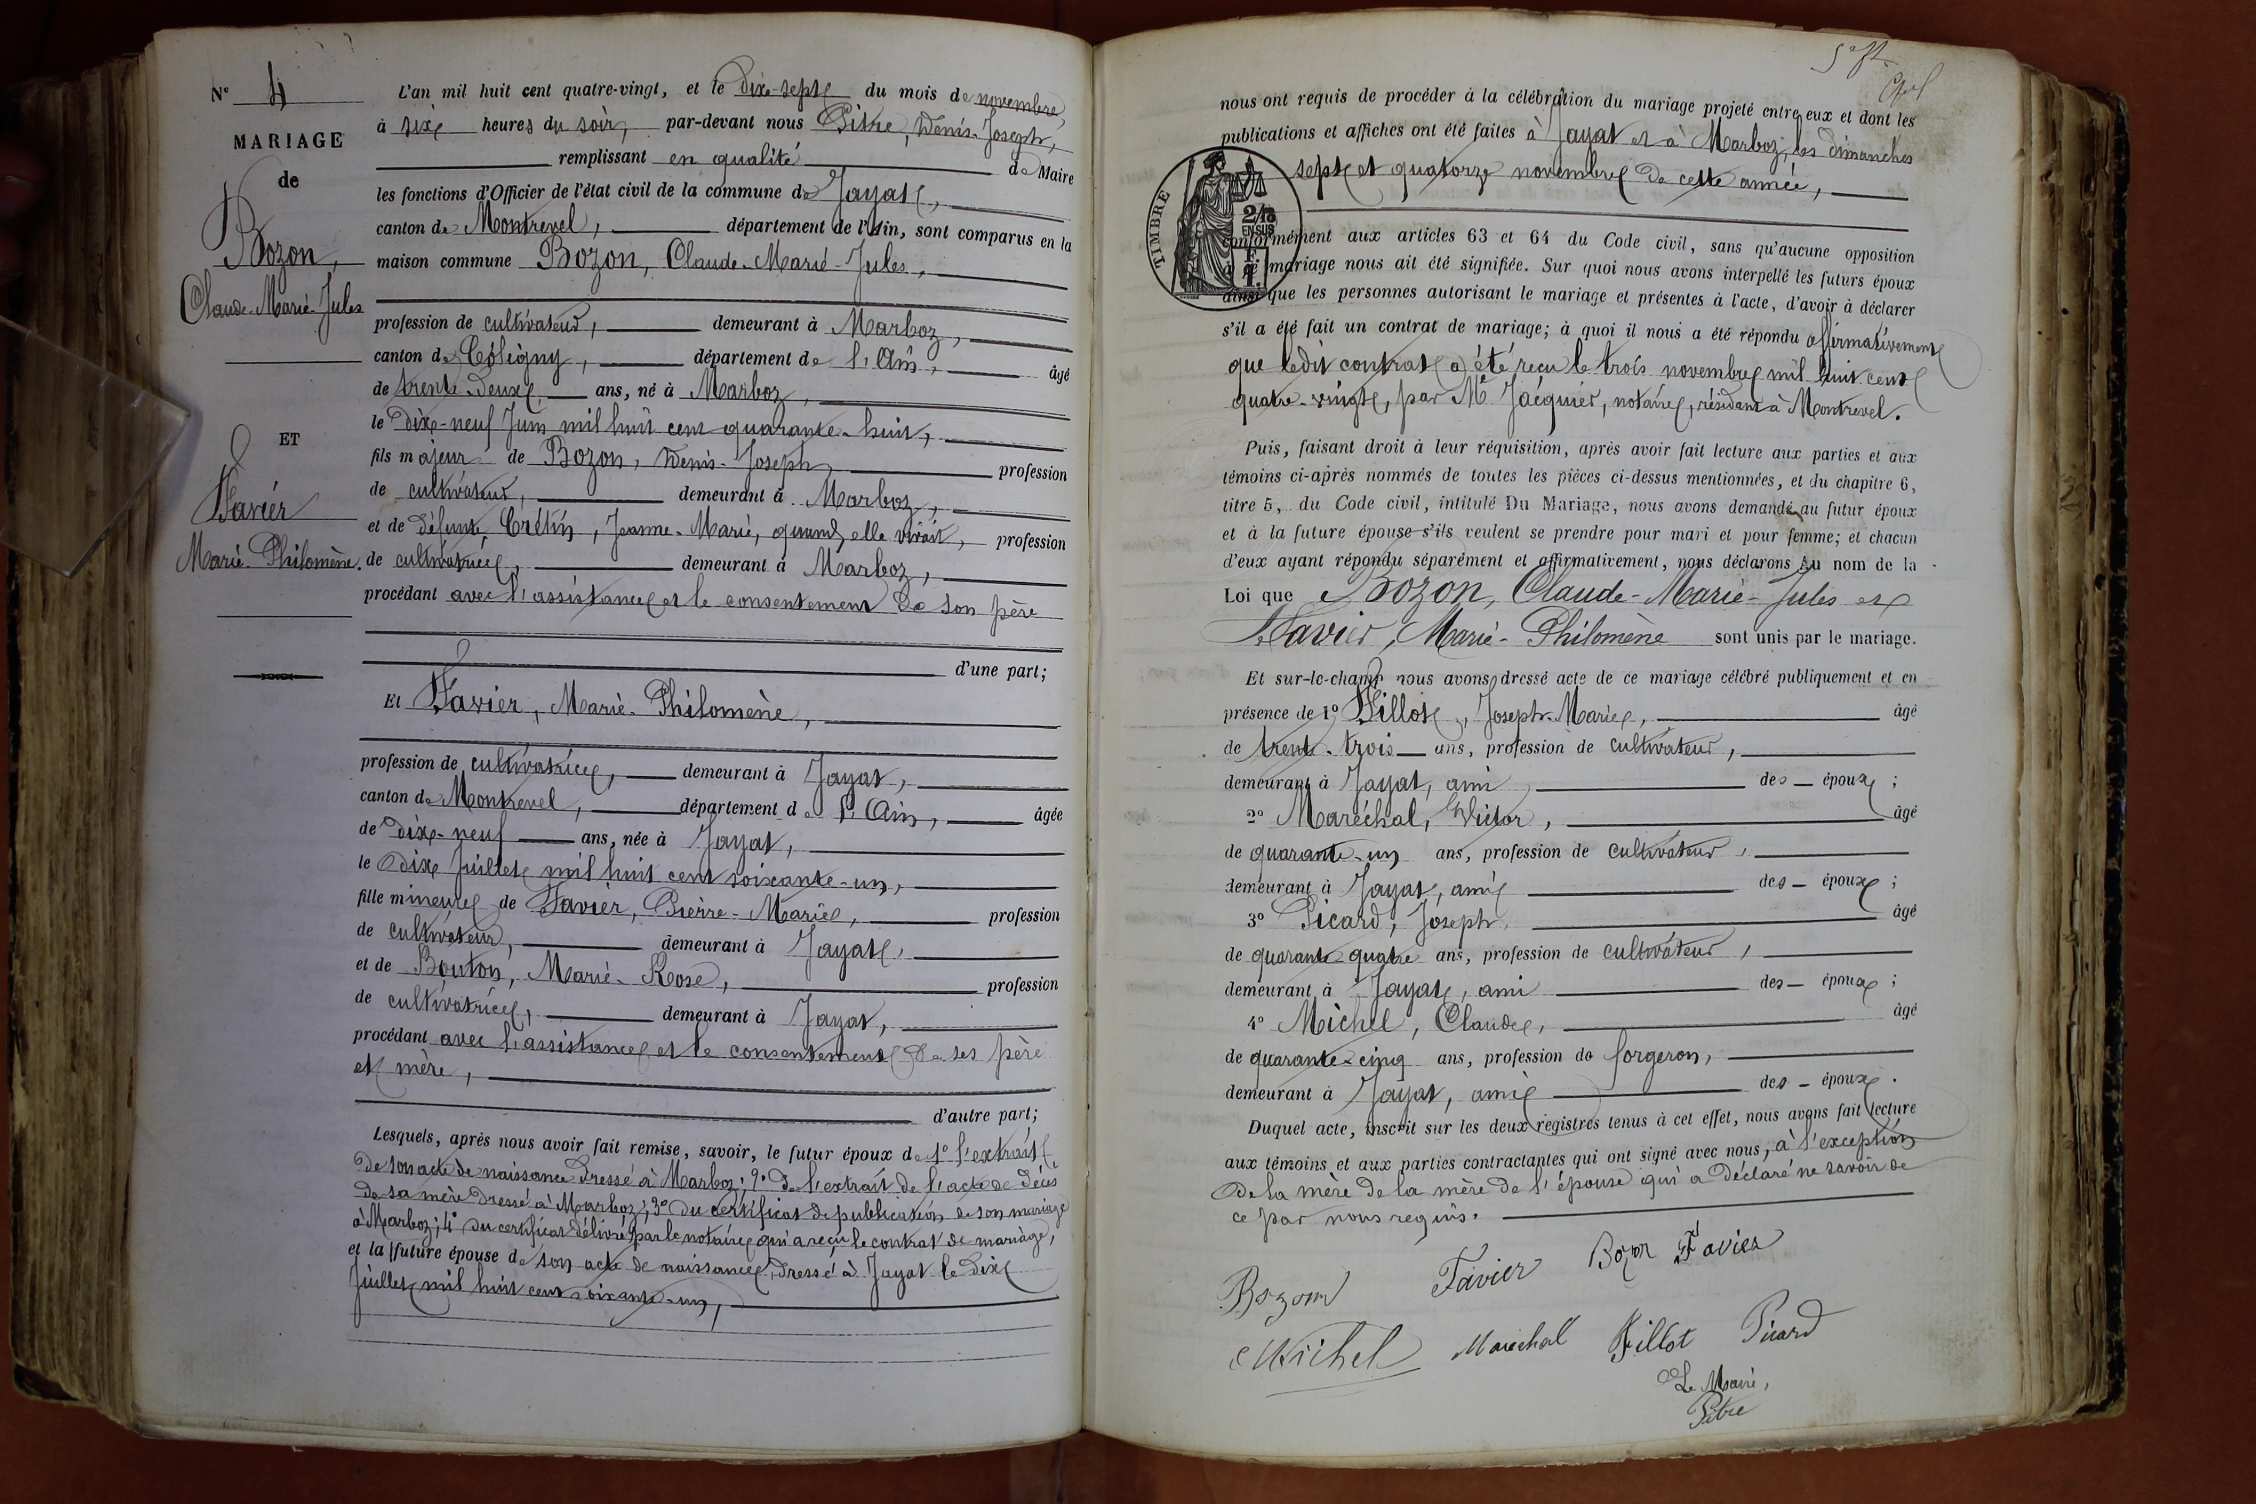 N° 4
MARIAGE
de
Bozon,
Claude-Marie-Jules
ET
Favier
Marie-Philomène.
L'an mil huit cent quatre-vingt, et le dix-sept du mois de novembre,
à six heures du soir, par-devant nous Pitre, Denis-Joseph,
remplissant en qualité de Maire
les fonctions d'Officier de l'état civil de la commune de Jayat,
canton de Montrevel, département de l'Ain, sont comparus en la
maison commune Bozon, Claude-Marie-Jules,
profession de cultivateur, demeurant à Marboz,
canton de Coligny, département de l'Ain, âgé
de trente-deux ans, né à Marboz,
le dix-neuf Juin mil huit cent quarante-huit,
fils majeur de Bozon, Denis-Joseph, profession
de cultivateur, demeurant à Marboz,
et de défunte Crétin, Jeanne-Marie, quand elle vivait, profession
de cultivatrice, demeurant à Marboz,
procédant avec l'assistance et le consentement de son père
d'une part;
Et Favier, Marie-Philomène,
profession de cultivatrice, demeurant à Jayat,
canton de Montrevel, département de l'Ain, âgée
de dix-neuf ans, née à Jayat,
le dix Juillet mil huit cent soixante-un,
fille mineure de Favier, Pierre-Marie, profession
de cultivateur, demeurant à Jayat,
et de Bouton, Marie-Rose, profession
de cultivatrice, demeurant à Jayat,
procédant avec l'assistance et le consentement de ses père
et mère,
d'autre part;
Lesquels, après nous avoir fait remise, savoir, le futur époux de 1° l'extrait
de son acte de naissance dressé à Marboz; 2° de l'extrait de l'acte de décès
de sa mère dressé à Marboz; 3° du certificat de publication de son mariage
à Marboz; 4° du certificat délivré par le notaire qui a reçu le contrat de mariage,
et la future épouse de son acte de naissance, dressé à Jayat le dix
Juillet mil huit cent soixante-un,
nous ont requis de procéder à la célébration du mariage projeté entre eux et dont les
publications et affiches ont été faites à Jayat et à Marboz, les dimanches
sept et quatorze novembre de cette année,
TIMBRE
2/10
EN SUS
conformément aux articles 63 et 64 du Code civil, sans qu'aucune opposition
à ce mariage nous ait été signifiée. Sur quoi nous avons interpellé les futurs époux
ainsi que les personnes autorisant le mariage et présentes à l'acte, d'avoir à déclarer
s'il a été fait un contrat de mariage; à quoi il nous a été répondu affirmativement
que ledit contrat a été reçu le trois novembre mil huit cent
quatre-vingt, par Me Jacquier, notaire, résidant à Montrevel.
Puis, faisant droit à leur réquisition, après avoir fait lecture aux parties et aux
témoins ci-après nommés de toutes les pièces ci-dessus mentionnées, et du chapitre 6,
titre 5, du Code civil, intitulé Du Mariage, nous avons demandé au futur époux
et à la future épouse s'ils veulent se prendre pour mari et pour femme; et chacun
d'eux ayant répondu séparément et affirmativement, nous déclarons Au nom de la
Loi que Bozon, Claude-Marie-Jules et
Favier, Marie-Philomène sont unis par le mariage.
Et sur-le-champ nous avons dressé acte de ce mariage célébré publiquement et en
présence de 1° Fillot, Joseph-Marie, âgé
de trente-trois ans, profession de cultivateur,
demeurant à Jayat, ami des époux;
2° Maréchal, Victor, âgé
de quarante-un ans, profession de cultivateur,
demeurant à Jayat, ami des époux;
3° Picard, Joseph, âgé
de quarante-quatre ans, profession de cultivateur,
demeurant à Jayat, ami des époux;
4° Michel, Claude, âgé
de quarante-cinq ans, profession de forgeron,
demeurant à Jayat, ami des époux.
Duquel acte, inscrit sur les deux registres tenus à cet effet, nous avons fait lecture
aux témoins et aux parties contractantes qui ont signé avec nous, à l'exception
de la mère de la mère de l'épouse qui a déclaré ne savoir de
ce par nous requis.
Bozon Favier Bozon Favier
Michel Maréchal Fillot Picard
Le Maire,
Pitre